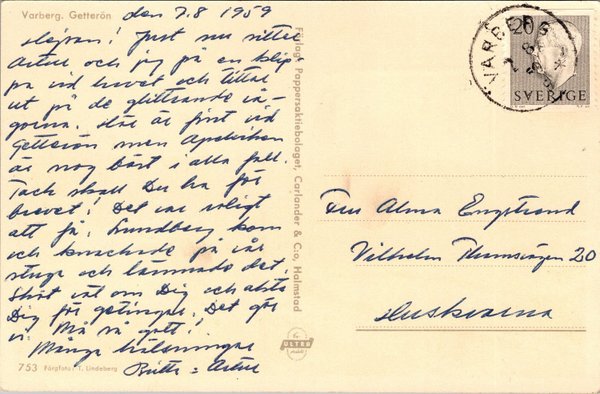 Varberg. Getterön
den 7.8 1959
Hejsan! Just nu sitter
Artur och jag på en klip-
pa vid havet och tittar
ut på de glittrande vå-
gorna. Här är fint vid
Getterön men Apelviken
är nog bäst i alla fall.
Tack skall Du ha för
brevet! Det var roligt
att få. Lundberg kom
och knackade på vår
stuga och lämnade det.
Sköt väl om Dig och akta
Dig för getingar. Det gör
vi. Må så gott!
Många hälsningar
Britta = Artur
753 Färgfoto: T. Lindeberg
Förlag: Pappersaktiebolaget, Carlander & Co, Halmstad
ULTRA
VARBERG
20
SVERIGE
Fru Alma Engstrand
Vilhelm Thamsvägen 20
Huskvarna